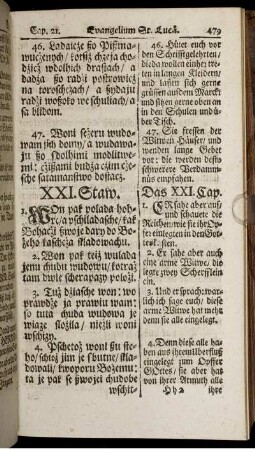 Cap. 21. Evangelium St. Lucä. 479
46. Ladajcże ßo Pißma-
wucżenych/ kotßiż chzeja cho-
dżicż wdolhich draßtach/ a
dadza ßo radżi poßtrowicż
na toroschcżach/ a ßydaju
radżi woßoko wschuliach/ a
sa blidom.
47. Woni żeżeru wudo-
wam sich domy/ a wudawaju
ßo sdolhimi modlitwe-
mi: cżißami budża cżim cże-
sche samamanstwo dostacż.
XXI. Staw.
1. WOn pak polada hoh-
re/ a wschiladasche/ kak
Bohacżi swoje dary do Bo-
żeho kaschcża składowachu.
2. Won pak teiż wulada
jenu chudu wudowu/ ta
tam dwie scherapazy położi.
3. Tuż dżiasche won: we
prawdże ja prawiu wam:
so tuta chuda wudowa je
wiazy słożiła/ niżli woni
wschizy.
4. Pschetoż woni ßu ste-
ho/schtoż jim je ßbutne/ skla-
dowali/ kwoporu Bożemu:
ta je pak se swojei chudobe
wschit-
46. Hütet euch vor
den Schrifftgelehrten/
die da wollen einher tre-
ten in langen Kleidern/
und lassen sich gerne
grüssen auf dem Marckt/
und sitzen gerne oben an
in den Schulen und ü-
ber Tisch.
47. Sie fressen der
Witwen Häuser und
wenden lange Gebet
vor: die werden desto
schwerere Verdam-
nüß empfahen.
Das XXI. Cap.
1. ER sahe aber auf/
und schauete die
Reichen/ wie sie ihr Opf-
fer einlegten in den Got-
tesk. sten.
2. Er sahe aber auch
eine arme Witwe/ die
legte zwey Scherfflein
ein.
3. Und er sprach: war-
lich ich sage euch/ diese
arme Witwe hat mehr
denn sie alle eingelegt.
4. Denn diese alle ha-
ben aus ihrem Uberfluß
eingelegt zum Opffer
GOttes/ sie aber hat
von ihrer Armuth alle
Hh 2 ihre